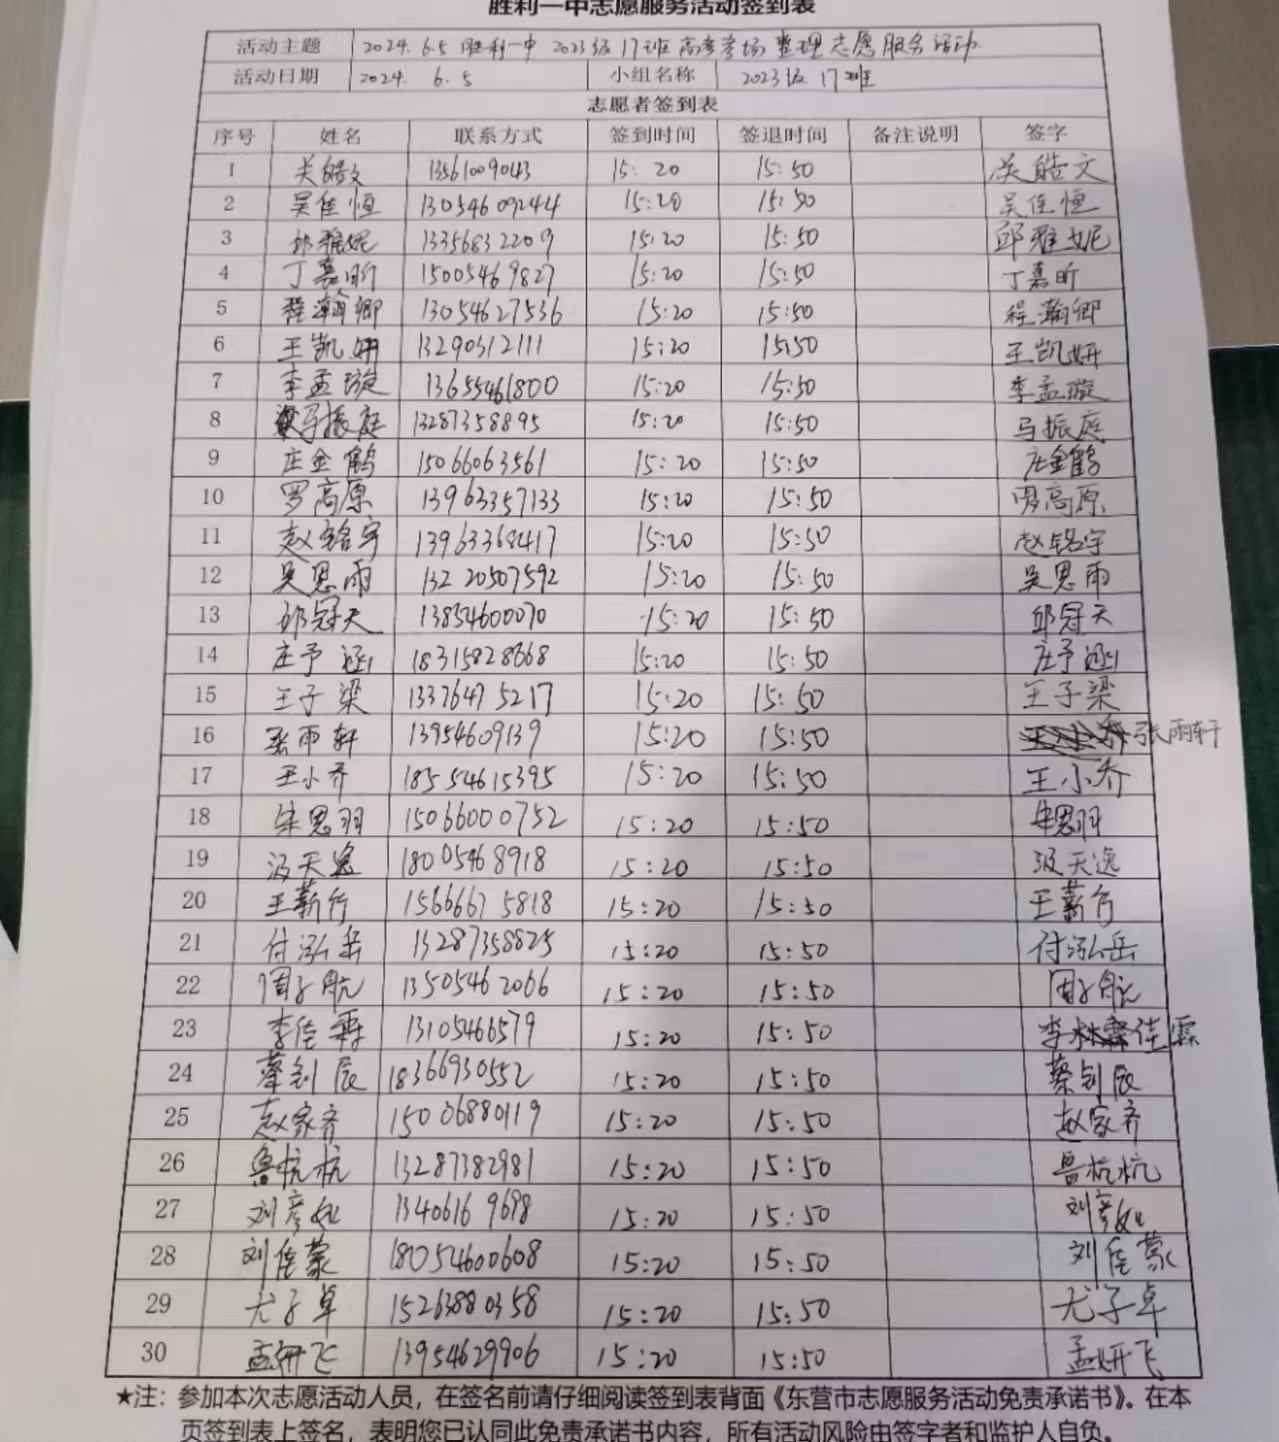 胜利一中志愿服务活动签到表
活动主题 2024.6.5 胜利一中 2023级17班高考考场整理志愿服务活动
活动日期 2024. 6.5 小组名称 2023级17班
志愿者签到表
序号 姓名 联系方式 签到时间 签退时间 备注说明 签字
1 关皓文 13561009043 15:20 15:50 关皓文
2 吴佳恒 13054609244 15:20 15:50 吴佳恒
3 邱雅妮 13356832209 15:20 15:50 邱雅妮
4 丁嘉昕 15005469827 15:20 15:50 丁嘉昕
5 程瀚卿 13054627536 15:20 15:50 程瀚卿
6 王凯妍 13290312111 15:20 15:50 王凯妍
7 李孟璇 13655461800 15:20 15:50 李孟璇
8 马振庭 13287358895 15:20 15:50 马振庭
9 庄金鹤 15066063561 15:20 15:50 庄金鹤
10 罗高原 13963357133 15:20 15:50 罗高原
11 赵铭宇 13963368417 15:20 15:50 赵铭宇
12 吴思雨 13220507592 15:20 15:50 吴思雨
13 邱冠天 13854600070 15:20 15:50 邱冠天
14 庄予涵 18315828668 15:20 15:50 庄予涵
15 王子梁 13376475217 15:20 15:50 王子梁
16 张雨轩 13954609139 15:20 15:50 张雨轩
17 王小乔 18554615395 15:20 15:50 王小乔
18 宋思羽 15066000752 15:20 15:50 宋思羽
19 汲天逸 18005468918 15:20 15:50 汲天逸
20 王薪行 15666675818 15:20 15:50 王薪行
21 付泓岳 13287358825 15:20 15:50 付泓岳
22 周子航 13505462066 15:20 15:50 周子航
23 李佳霖 13105466579 15:20 15:50 李佳霖
24 蔡钊辰 18366930552 15:20 15:50 蔡钊辰
25 赵家齐 15006880119 15:20 15:50 赵家齐
26 鲁杭杭 13287382981 15:20 15:50 鲁杭杭
27 刘彦如 13406169698 15:20 15:50 刘彦如
28 刘佳蒙 18054600608 15:20 15:50 刘佳蒙
29 尤子卓 15263880358 15:20 15:50 尤子卓
30 孟妍飞 13954629906 15:20 15:50 孟妍飞
★注：参加本次志愿活动人员，在签名前请仔细阅读签到表背面《东营市志愿服务活动免责承诺书》。在本
页签到表上签名，表明您已认同此免责承诺书内容，所有活动风险由签字者和监护人自负。